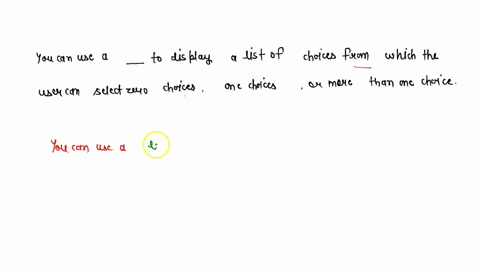 You can use a __ to display a list of choices from which the
user can select zero choices, one choices, or more than one choice.
You can use a li